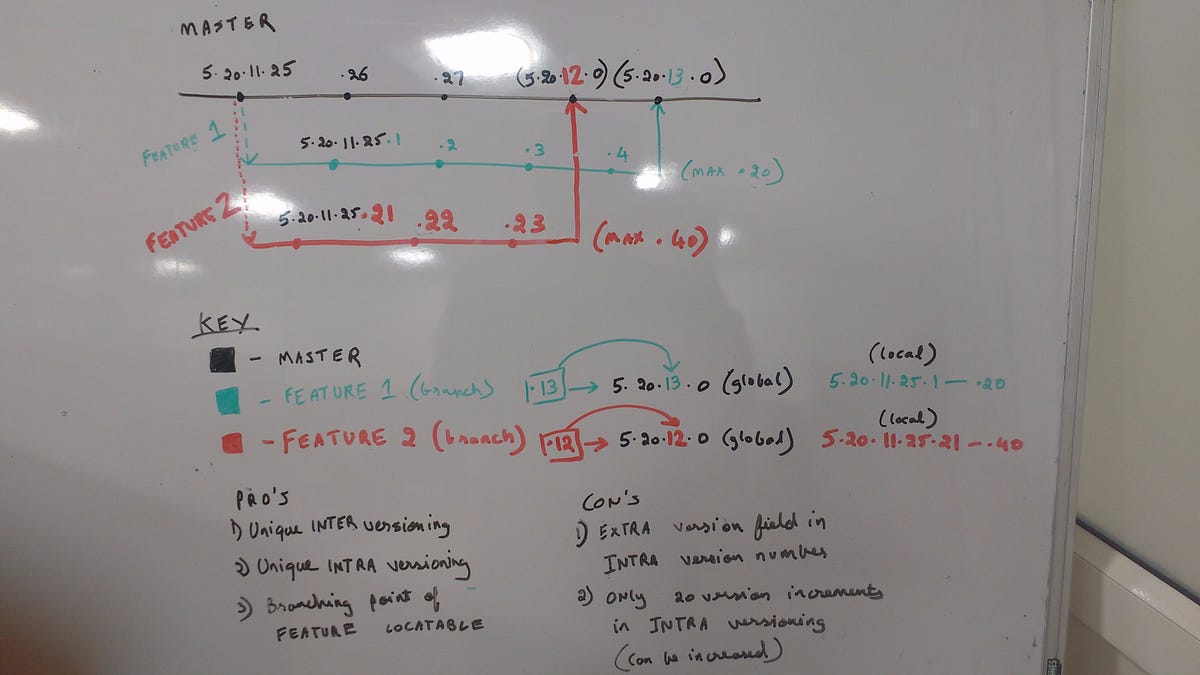 MASTER
5.20.11.25 .26 .27 (5.20.12.0) (5.20.13.0)
FEATURE 1 5.20.11.25.1 .2 .3 .4 (MAX .20)
FEATURE 2 5.20.11.25.21 .22 .23 (MAX .40)
KEY
- MASTER (local)
- FEATURE 1 (branch) .13 → 5.20.13.0 (global) 5.20.11.25.1 — .20
(local)
- FEATURE 2 (branch) .12 → 5.20.12.0 (global) 5.20.11.25.21 — .40
PRO'S
1) Unique INTER versioning
2) Unique INTRA versioning
3) Branching point of
FEATURE LOCATABLE
CON'S
1) EXTRA version field in
INTRA version number
2) ONLY 20 version increments
in INTRA versioning
(Can be increased)